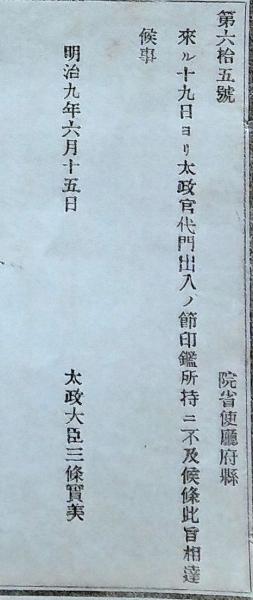 第六拾五號
院省使廳府縣
來ル十九日ヨリ太政官代門出入ノ節印鑑所持ニ不及候條此旨相達
候事
明治九年六月十五日
太政大臣三條實美